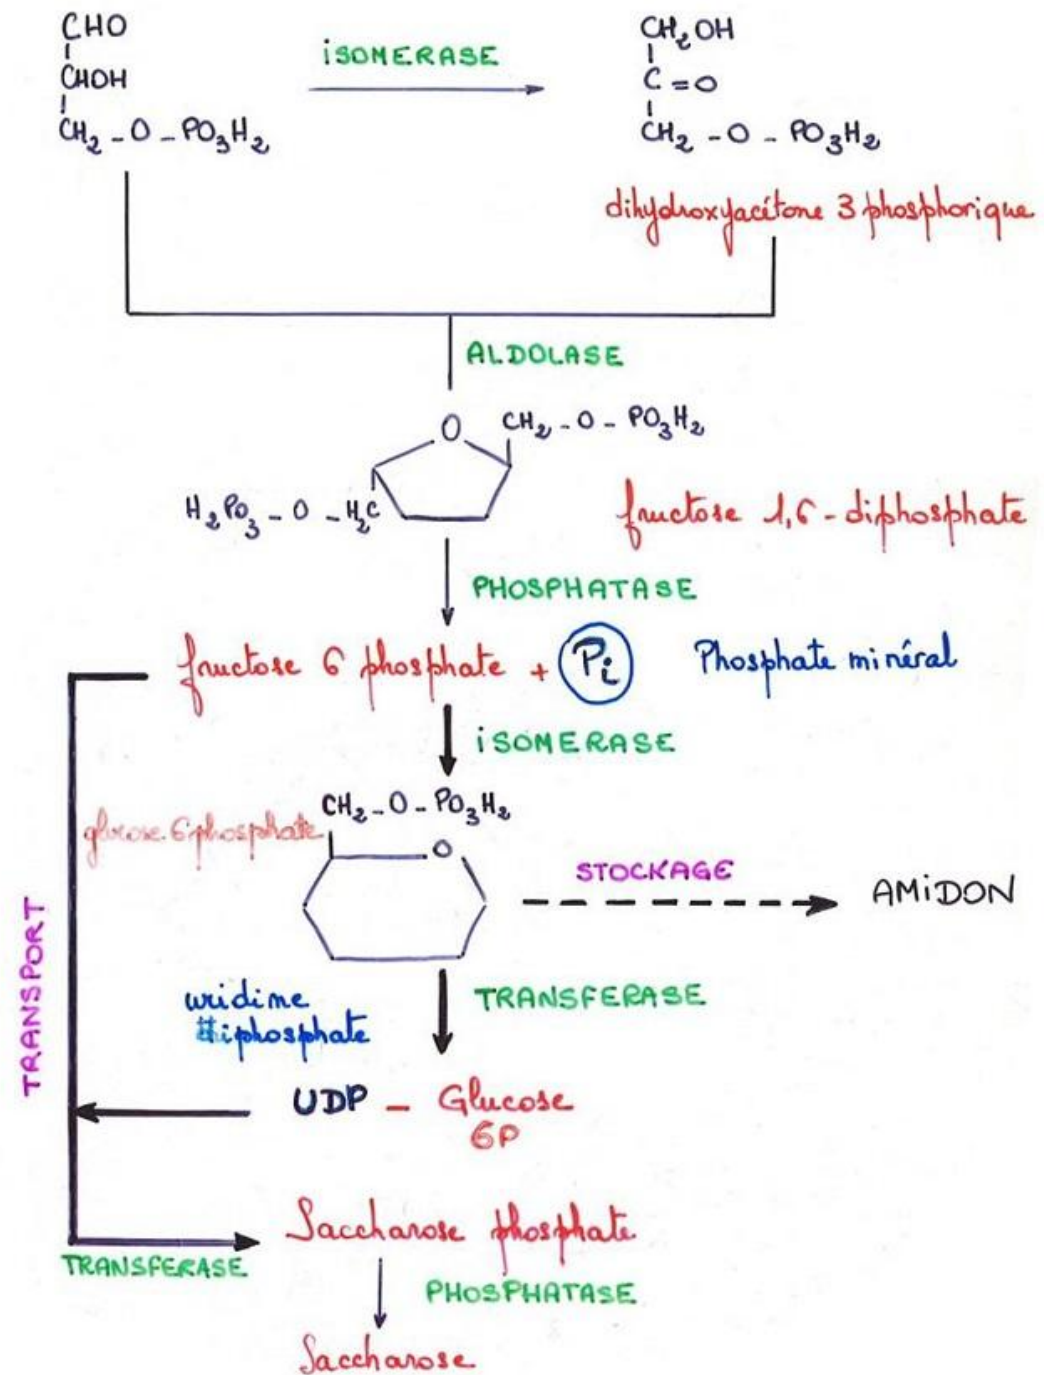 CHO
CHOH
CH2 - O - PO3H2
iSOMERASE
CH2OH
C = O
CH2 - O - PO3H2
dihydroxyacétone 3 phosphorique
ALDOLASE
O
CH2 - O - PO3H2
H2PO3 - O - H2C
fructose 1,6 - diphosphate
PHOSPHATASE
fructose 6 phosphate + Pi
Phosphate minéral
iSOMERASE
CH2 - O - PO3H2
glucose 6 phosphate
O
STOCKAGE
AMiDON
TRANSPORT
uridine
TRANSFERASE
UDP - Glucose
6P
Saccharose phosphate
TRANSFERASE
PHOSPHATASE
Saccharose